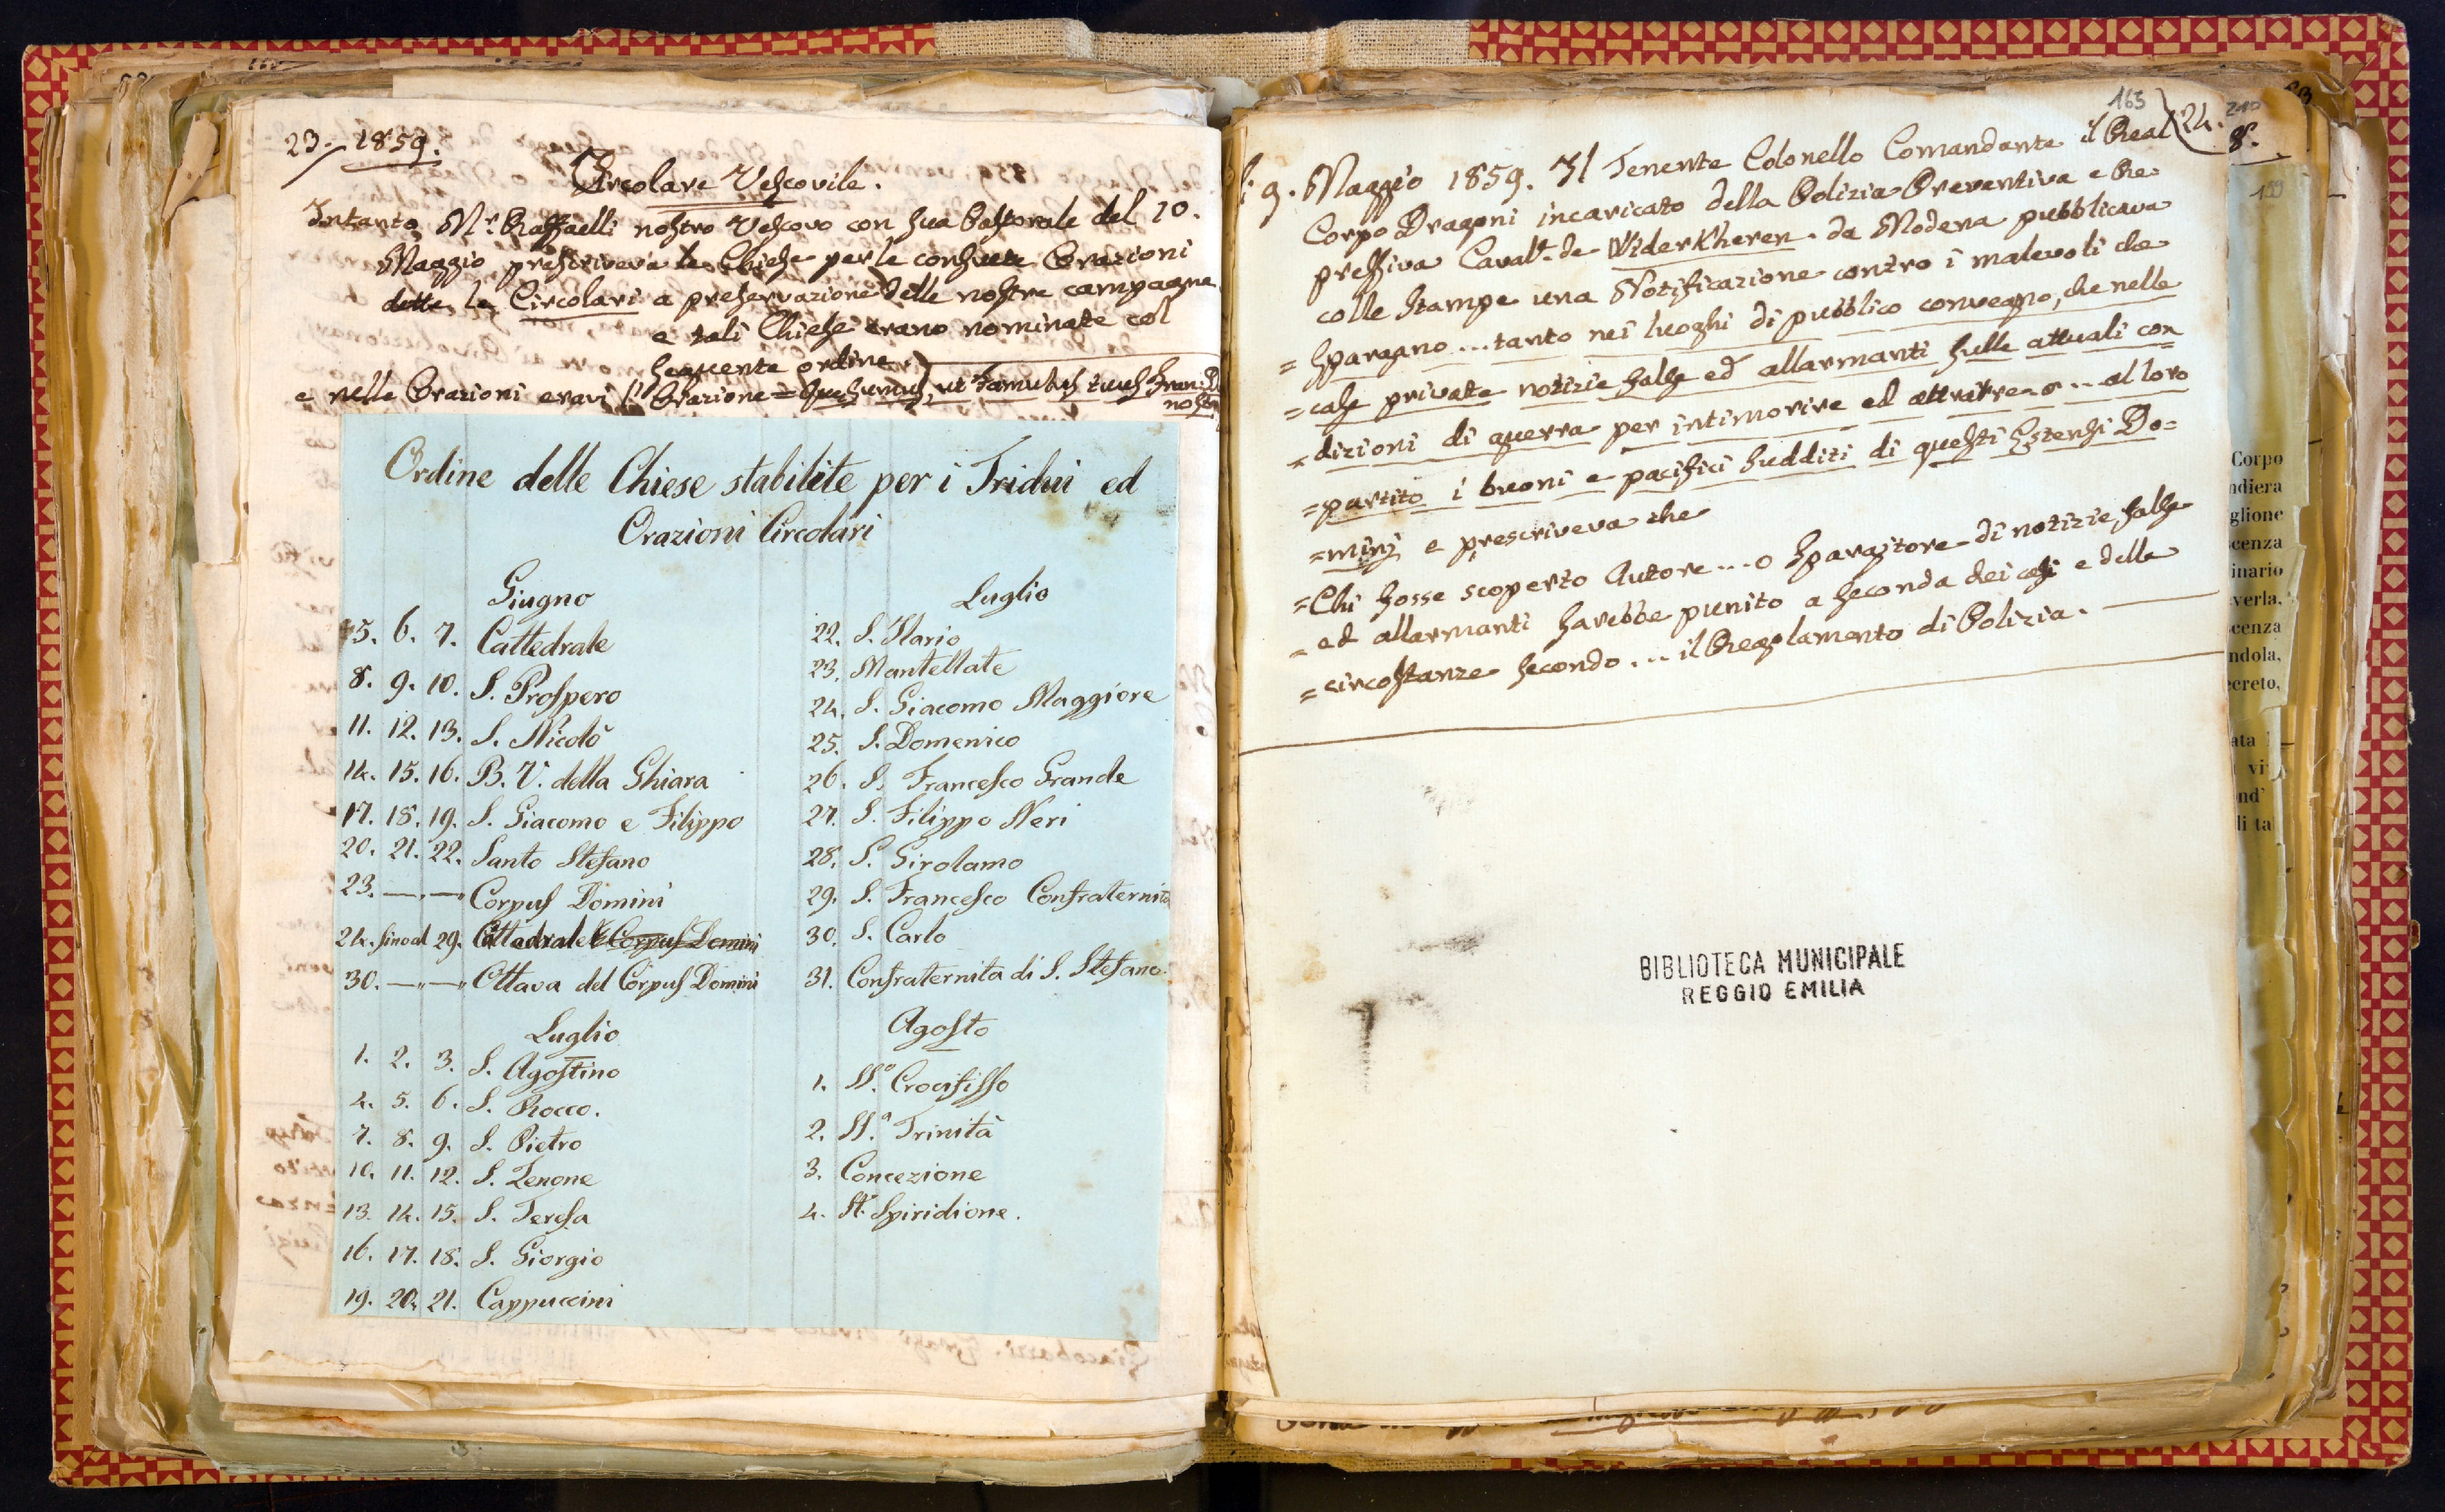 23. 1859.
Circolare Vescovile.
Intanto M.r Raffaelli nostro Vescovo con sua Pastorale del 10.
Maggio prescriveva le Chiese per le consuete Orazioni
dette le Circolari a preservazione delle nostre campagne
e tali Chiese erano nominate col
seguente ordine
e nelle Orazioni eravi l' Orazione = Quesumus, ut Famulus tuus Fran: D
noster
Ordine delle Chiese stabilite per i Tridui ed
Orazioni Circolari
Giugno
5. 6. 7. Cattedrale
8. 9. 10. S. Prospero
11. 12. 13. S. Nicolò
14. 15. 16. B. V. della Ghiara
17. 18. 19. S. Giacomo e Filippo
20. 21. 22. Santo Stefano
23. —"—" Corpus Domini
24. sino al 29. Cattedrale Corpus Domini
30. —"—" Ottava del Corpus Domini
Luglio
1. 2. 3. S. Agostino
4. 5. 6. S. Rocco.
7. 8. 9. S. Pietro
10. 11. 12. S. Zenone
13. 14. 15. S. Teresa
16. 17. 18. S. Giorgio
19. 20. 21. Cappuccini
Luglio
22. S. Ilario
23. Mantellate
24. S. Giacomo Maggiore
25. S. Domenico
26. S. Francesco Grande
27. S. Filippo Neri
28. S. Girolamo
29. S. Francesco Confraternita
30. S. Carlo
31. Confraternita di S. Stefano.
Agosto
1. SS.o Crocifisso
2. SS.a Trinità
3. Concezione
4. St. Spiridione.
163 24. 210
8.
199
li 9. Maggio 1859. Il Tenente Colonello Comandante il Real
Corpo Dragoni incaricato della Polizia Preventiva e Re-
pressiva Caval.r de Widerkheren da Modena pubblicava
colle stampe una Notificazione contro i malevoli che
= spargano ... tanto nei luoghi di pubblico convegno, che nelle
= case private notizie false ed allarmanti sulle attuali con
= dizioni di guerra per intimorire ed attrarre ... al loro
= partito i buoni e pacifici sudditi di questi Estensi Do=
= minj e prescriveva che
= Chi fosse scoperto Autore ... o sparagitore di notizie false
= ed allarmanti sarebbe punito a seconda dei casi e delle
= circostanze secondo ... il Regolamento di Polizia.
BIBLIOTECA MUNICIPALE
REGGIO EMILIA
Corpo
ndiera
glione
scenza
inario
verla,
cenza
ndola,
ecreto,
ata
vi
nd'
di ta